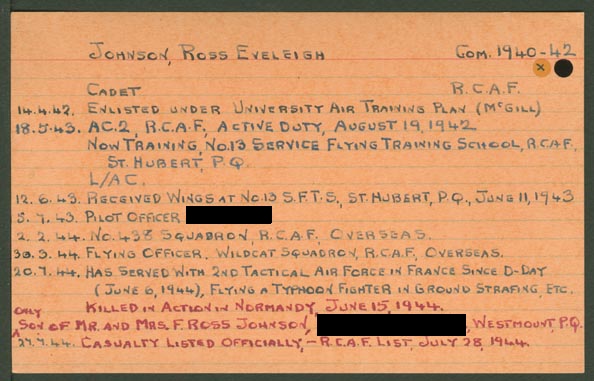 JOHNSON, ROSS EVELEIGH COM. 1940-42
x
CADET R.C.A.F.
14.4.42. ENLISTED UNDER UNIVERSITY AIR TRAINING PLAN (MCGILL)
18.5.43. AC.2, R.C.A.F., ACTIVE DUTY, AUGUST 19, 1942
NOW TRAINING, NO.13 SERVICE FLYING TRAINING SCHOOL, R.C.A.F.
ST. HUBERT, P.Q.
L/AC.
12.6.43. RECEIVED WINGS AT NO.13 S.F.T.S., ST. HUBERT, P.Q., JUNE 11, 1943
5.7.43. PILOT OFFICER
2.2.44. NO. 438 SQUADRON, R.C.A.F., OVERSEAS.
30.3.44. FLYING OFFICER, WILDCAT SQUADRON, R.C.A.F., OVERSEAS.
20.7.44. HAS SERVED WITH 2ND TACTICAL AIR FORCE IN FRANCE SINCE D-DAY
(JUNE 6, 1944), FLYING A TYPHOON FIGHTER IN GROUND STRAFING, ETC.
KILLED IN ACTION IN NORMANDY, JUNE 15, 1944.
ONLY
SON OF MR. AND MRS. F. ROSS JOHNSON, WESTMOUNT, P.Q.
27.7.44. CASUALTY LISTED OFFICIALLY, - R.C.A.F. LIST, JULY 28, 1944.